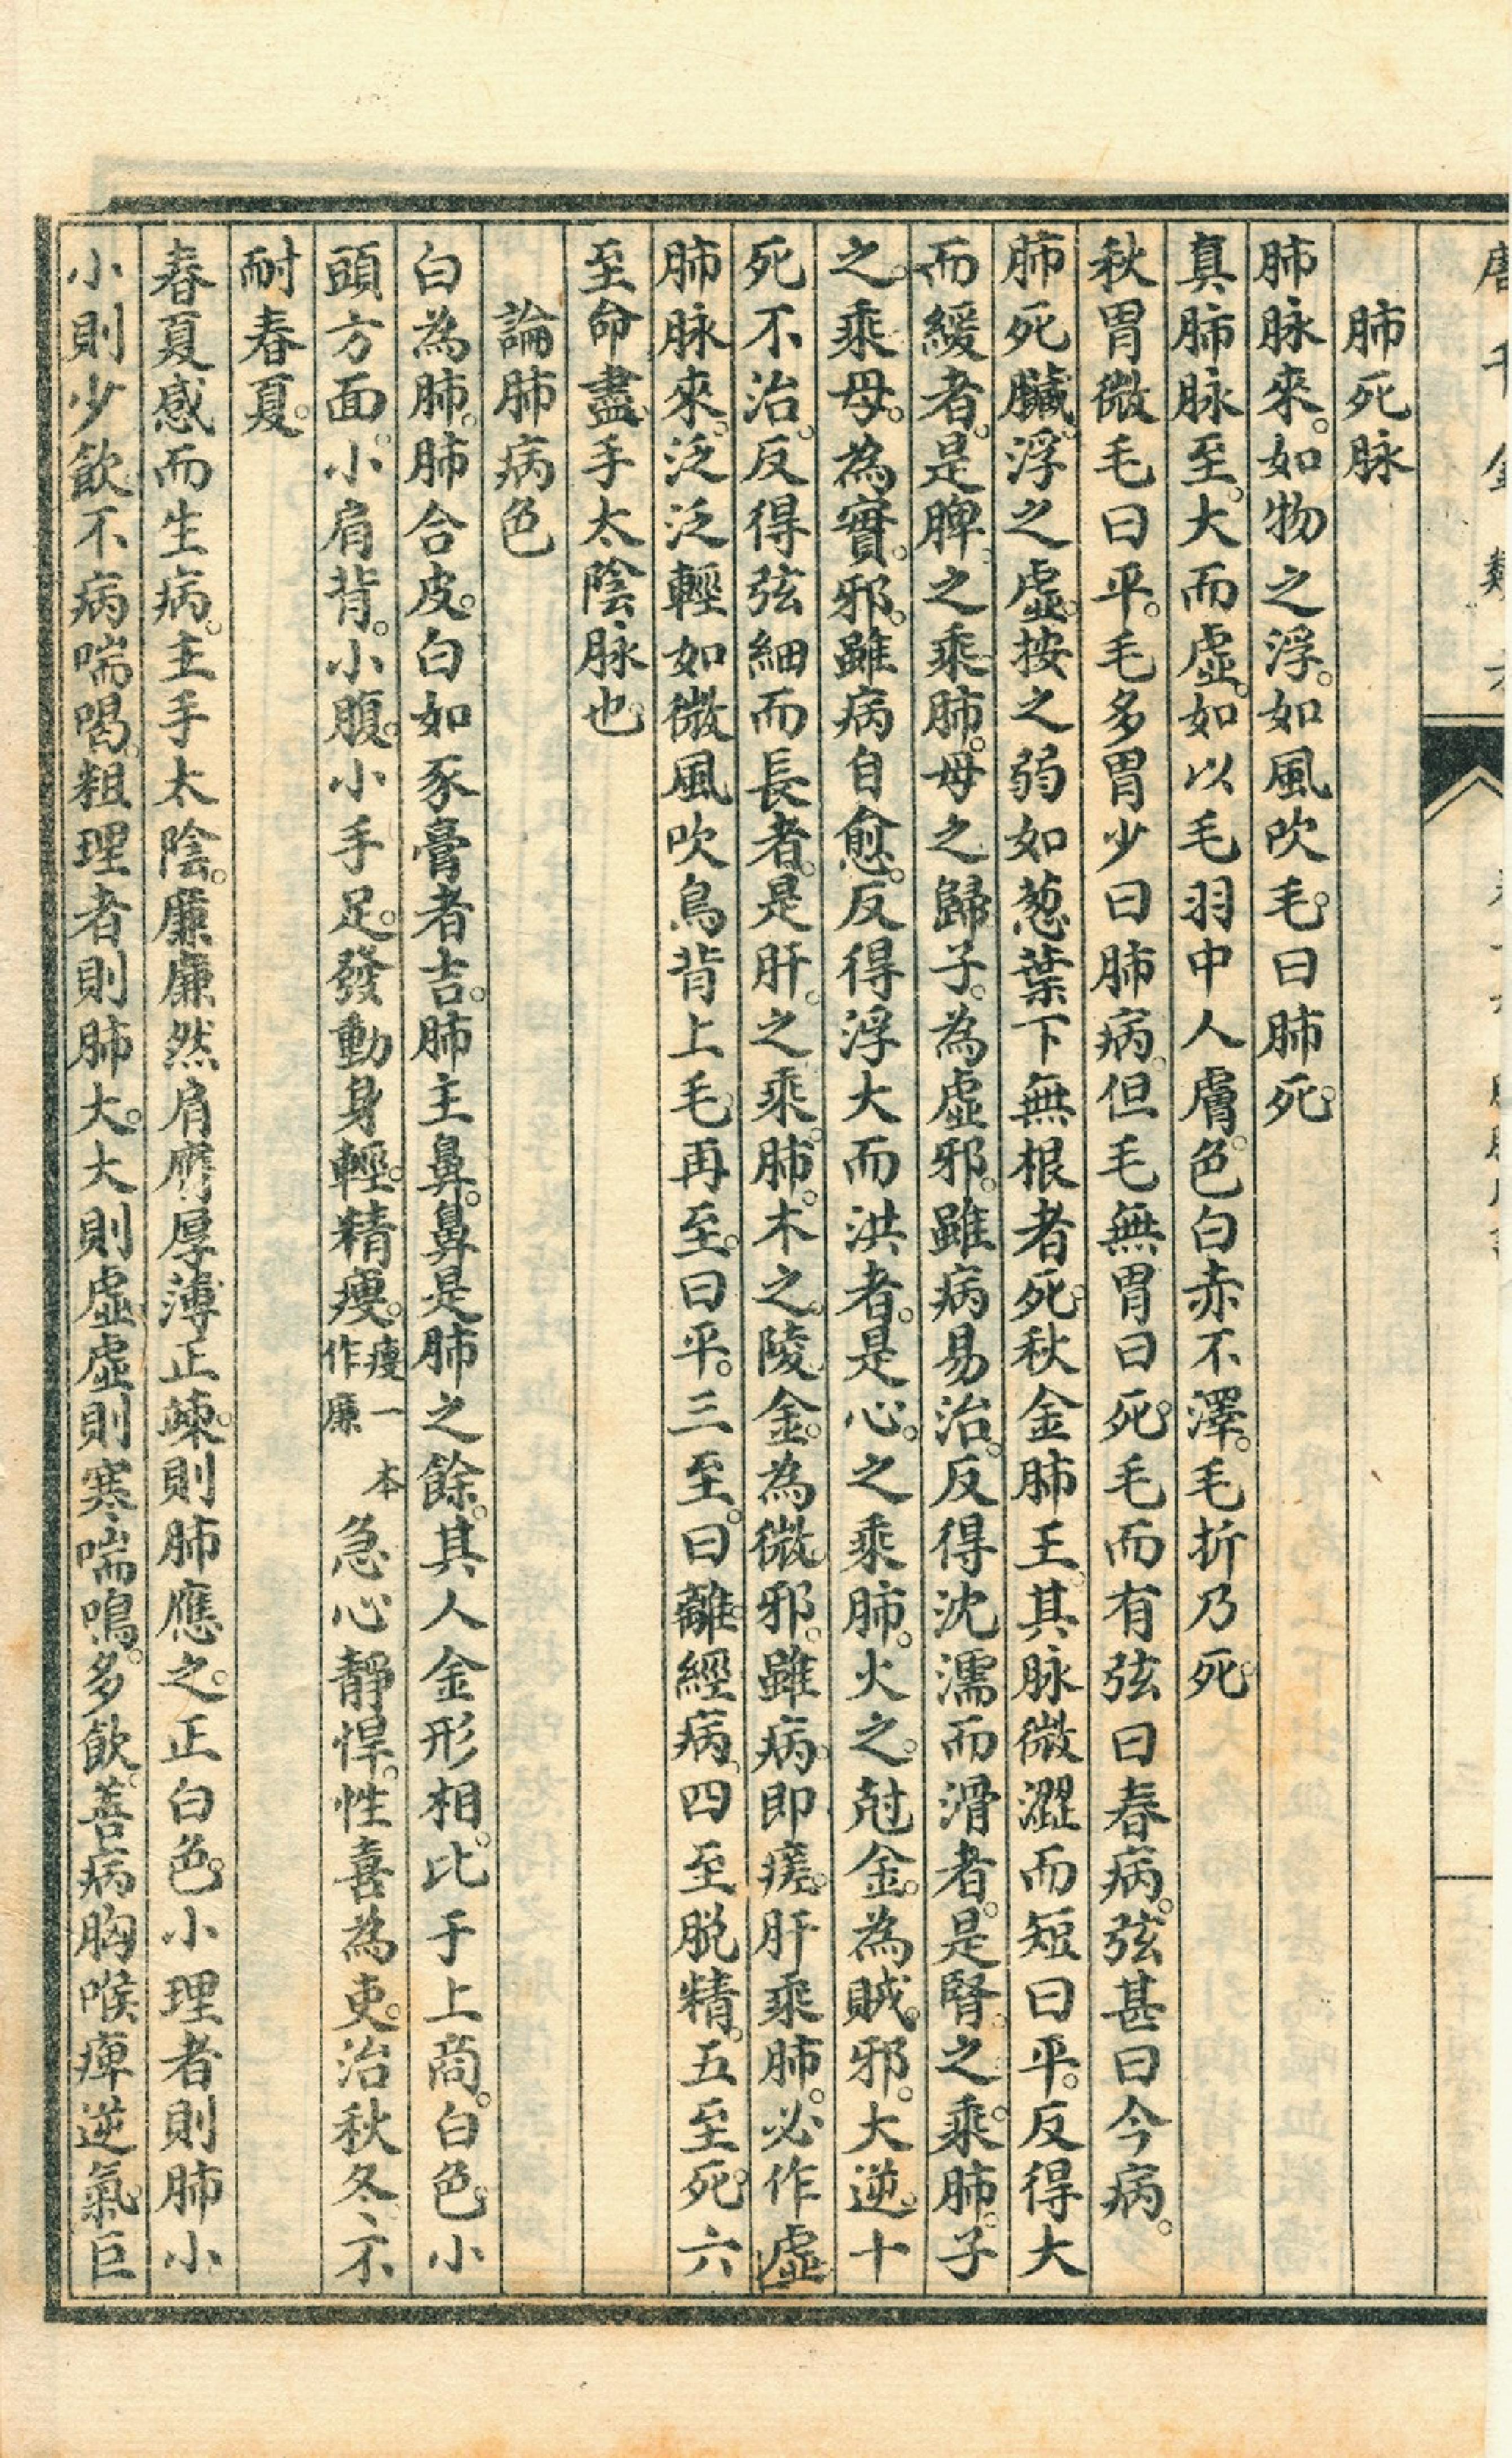 肺死脉
肺脉來。如物之浮。如風吹毛。曰肺死。
真肺脉至。大而虛。如以毛羽中人膚。色白赤不澤。毛折乃死。
秋胃微毛曰平。毛多胃少曰肺病。但毛無胃曰死。毛而有弦曰春病。弦甚曰今病。
肺死臟。浮之虛。按之弱如葱葉下無根者死。秋金肺王。其脉微澀而短曰平。反得大
而緩者。是脾之乘肺。母之歸子。為虛邪。雖病易治。反得沈濡而滑者。是腎之乘肺。子
之乘母。為實邪。雖病自愈。反得浮大而洪者。是心之乘肺。火之尅金。為賊邪。大逆。十
死不治。反得弦細而長者。是肝之乘肺。木之陵金。為微邪。雖病即瘥。肝乘肺。必作虛
肺脉來。泛泛輕如微風吹鳥背上毛。再至。曰平。三至。曰離經病。四至脱精。五至死。六
至命盡。手太陰脉也
論肺病色
白為肺。肺合皮。白如豕膏者吉。肺主鼻。鼻是肺之餘。其人金形相。比于上商。白色。小
頭方面。小肩背。小腹。小手足。發動身輕。精瘦。瘦一本作廉急心靜悍。性喜為吏。治秋冬。不
耐春夏。
春夏感而生病。主手太陰。廉廉然肩膺厚薄正竦。則肺應之。正白色。小理者則肺小
小則少飲。不病喘喝。粗理者則肺大。大則虛。虛則寒喘鳴。多飲。善病胸喉痺逆氣。巨